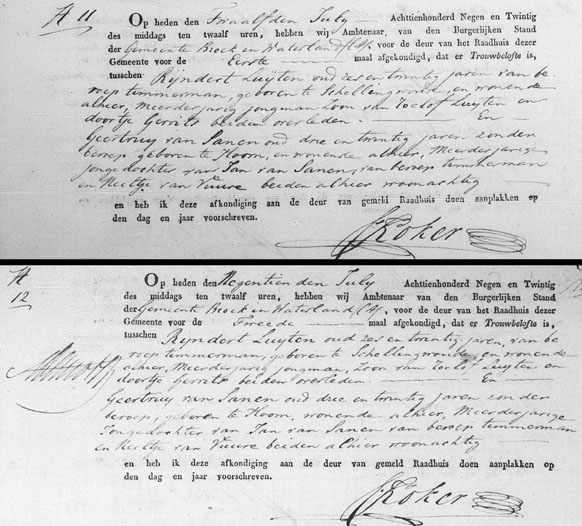 N 11
Op heden den Twaalfden July Achttienhonderd Negen en Twintig
des middags ten twaalf uren, hebben wij Ambtenaar van den Burgerlijken Stand
der Gemeente Broek in Waterland voor de deur van het Raadhuis dezer
Gemeente voor de Eerste maal afgekondigd, dat er Trouwbelofte is,
tusschen Ryndert Luyten oud zes en twintig jaren van be
roep timmerman, geboren te Schellingwoude, en wonende
alhier, Meerderjarig jongman Zoon van Roelof Luyten en
doortje Gerrits beiden overleden. En
Geertruy van Sanen oud drie en twintig jaren zonder
beroep geboren te Hoorn, en wonende alhier, Meerderjarige
Jongedochter van Jan van Sanen, van beroep timmerman
en Neeltje van Vuure beiden alhier woonachtig
en heb ik deze afkondiging aan de deur van gemeld Raadhuis doen aanplakken op
den dag en jaar voorschreven.
Koker
N
12
Op heden den Negentienden July Achttienhonderd Negen en Twintig
des middags ten twaalf uren, hebben wij Ambtenaar van den Burgerlijken Stand
der Gemeente Broek in Waterland voor de deur van het Raadhuis dezer
Gemeente voor de Tweede maal afgekondigd, dat er Trouwbelofte is,
tusschen Ryndert Luyten oud zes en twintig jaren, van be
roep timmerman, geboren te Schellingwoude, en wonende
alhier, Meerderjarig jongman, Zoon van Roelof Luyten en
doortje Gerrits beiden overleden En
Geertruy van Sanen oud drie en twintig jaren zonder
beroep, geboren te Hoorn, wonende alhier, Meerderjarige
Jongedochter van Jan van Sanen van beroep timmerman
en Neeltje van Vuure beiden alhier woonachtig
en heb ik deze afkondiging aan de deur van gemeld Raadhuis doen aanplakken op
den dag en jaar voorschreven.
Koker